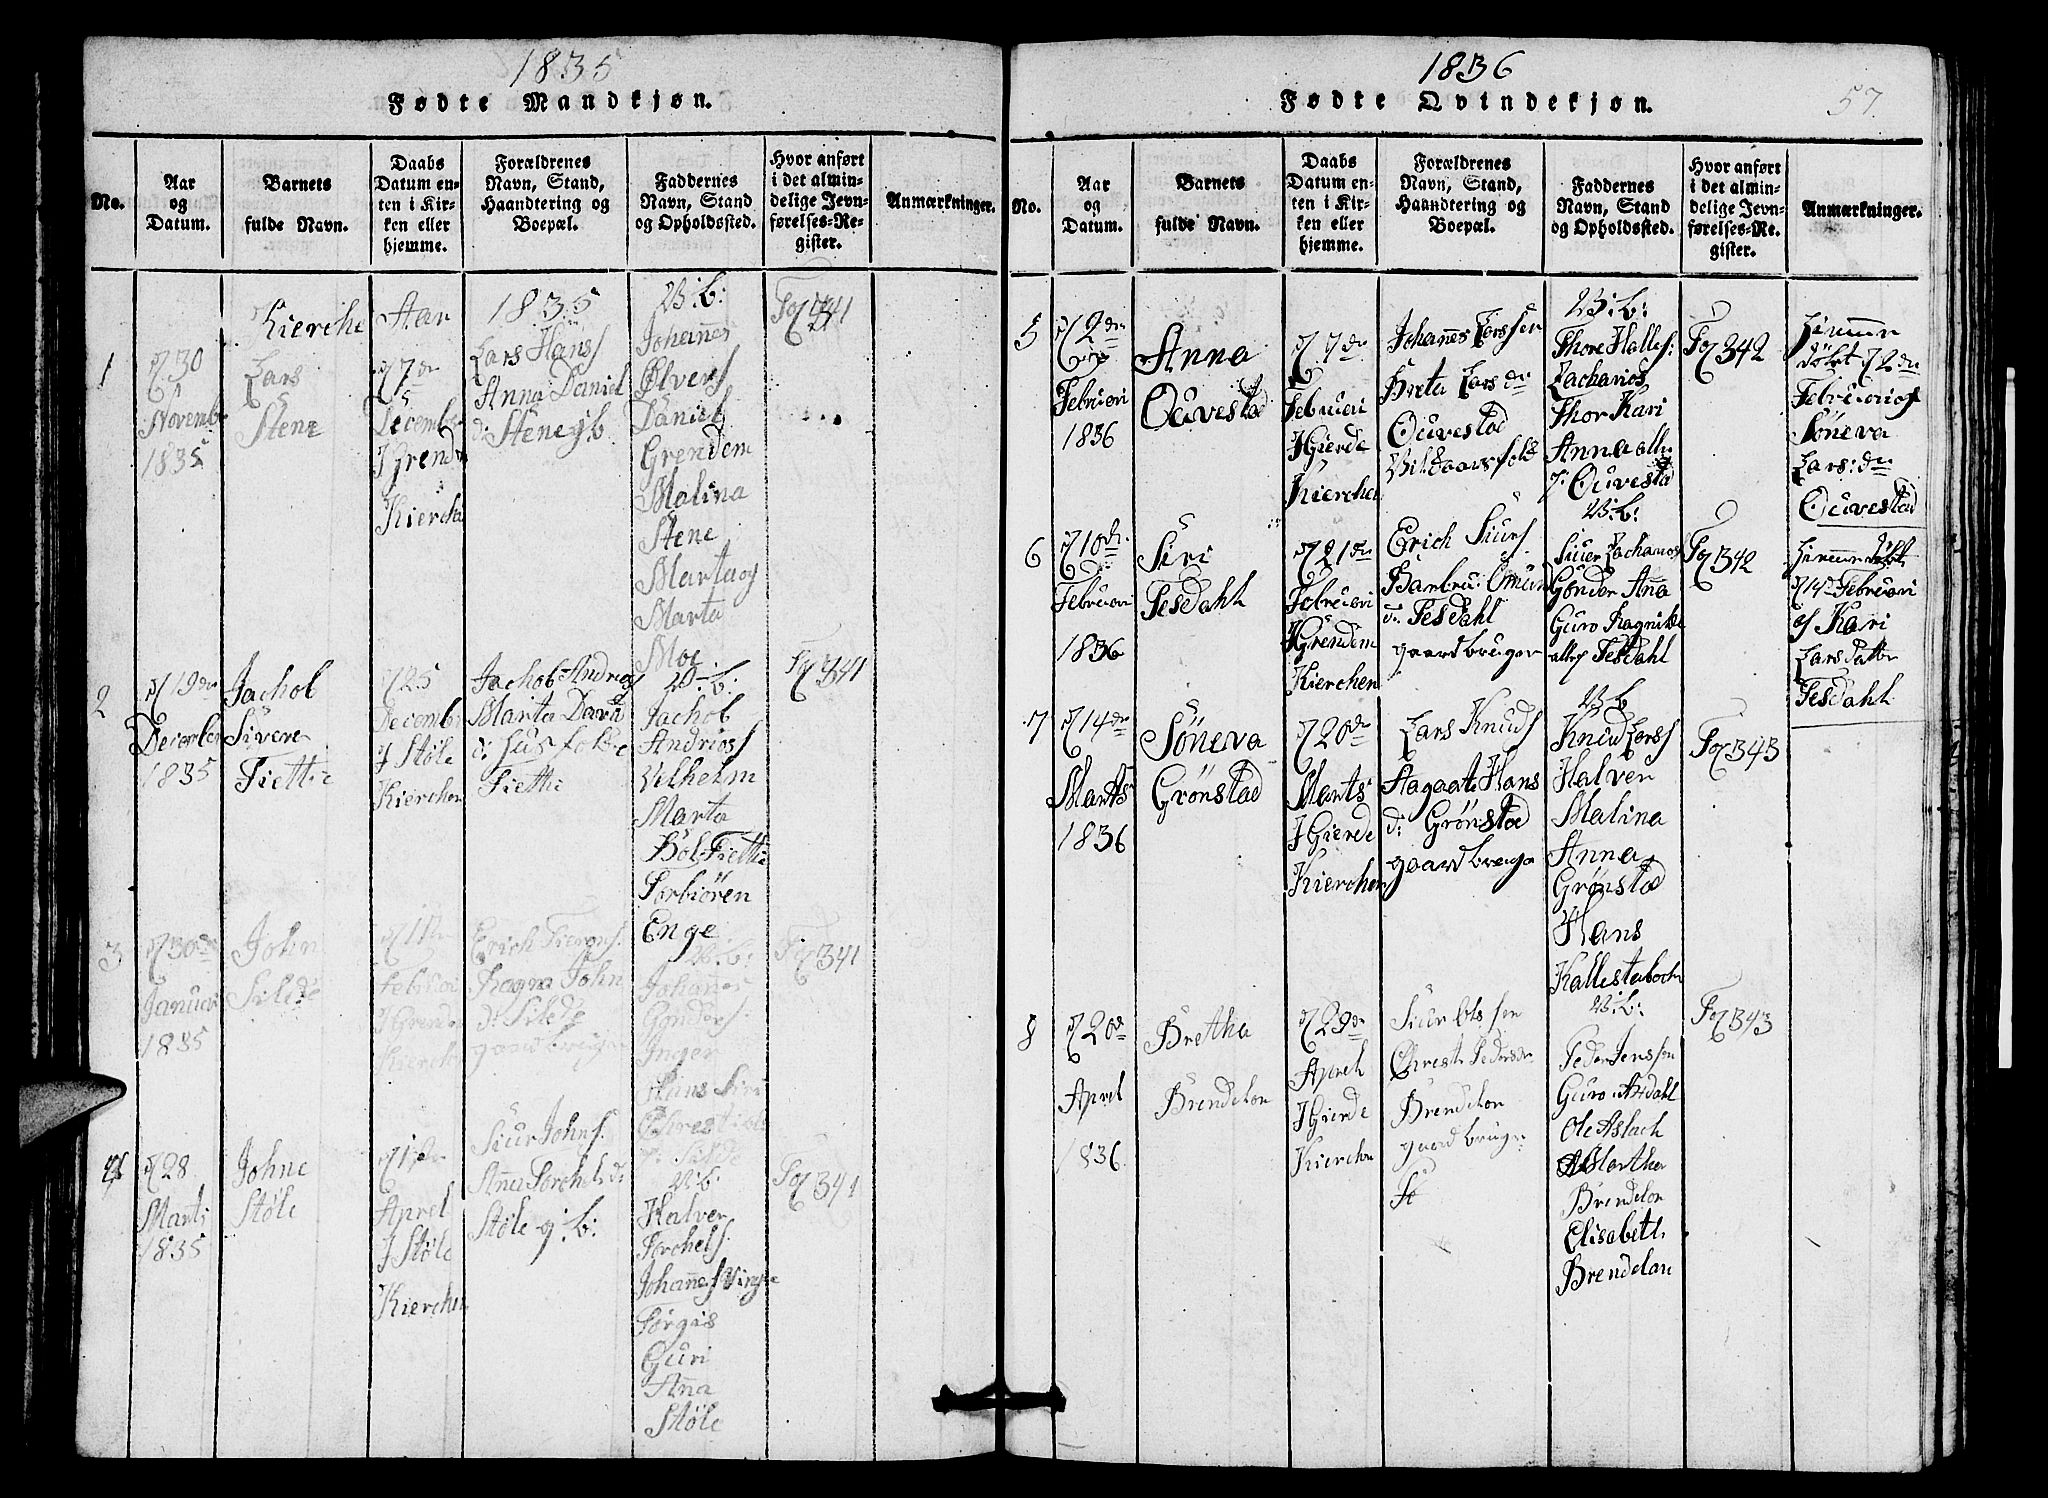 1835
Fødte Mandkjøn.
No.
Aar
og
Datum.
Barnets
fulde Navn.
Daabs
Datum en-
ten i Kir-
ken eller
hjemme.
Forældrenes
Navn, Stand,
Haandtering og
Boepæl.
Faddernes
Navn, Stand
og Opholdssted.
Hvor anført
i det almin-
delige Jevn-
førelses-Re-
gister.
Anmærkninger.
Kierche Aar 1835
1
30
Novemb
1835
Lars
Stene
7de
December
J Grend
Kierche
Lars Hans
Anna Daniel
d: Stene g b
V: b:
Johannes
Ølvers
Daniel
Grendem
Malina
Stene
Marta og
Marta
Moe
Fol 341
2
19de
December
1835
Jachob
Sivere
Fiettie
25
Decemb
J Støle
Kierchen
Jachob Andrias
Marta Davi
d: Husfolke
Fiettie
V: b:
Jachob
Andrias
Vilhelm
Marta
Bol Fiettie
Torbiören
Enge
Fol 341
3
30de
Januari
1835
John
Silde
11te
Februari
J Grendem
Kierchen
Erich
Ragna John
d: Silde
gaardbruger
V: b:
Johannes
Gonders
Inger
Hans Siri
Christi
Silde
Fol 341
4
28
Marts
1835
Johne
Støle
Aprel
J Støle
Kierchen
Siur Johns.
Anna Torchels d:
Støle g: b:
V: b:
Halver
Torchels
Johannes Vinge
Torgis
Guri
Anna
Støle
Fol 341
1836
Fødte Qvindekjøn.
57
No.
Aar
og
Datum.
Barnets
fulde Navn.
Daabs
Datum en-
ten i Kir-
ken eller
hjemme.
Forældrenes
Navn, Stand,
Haandtering og
Boepæl.
Faddernes
Navn, Stand
og Opholdssted.
Hvor anført
i det almin-
delige Jevn-
førelses-Re-
gister.
Anmærkninger.
5
2de
Februari
1836
Anna
Ouvestad
7de
Februari
J Gierde
Kierchen
Johannes Larssen
Breta Lars dr
Ouvestad
V: b:
Thore Halles:
Zacharias
Thor Kari
Anna alle
Ouvestad
Fol 342
Himme
döbt 2de
Februari of
Söneva
Lars: dr
Ouvestad
6
10de
Februari
1836
Siri
Tesdahl
21de
Februari
J Grendem
Kierchen
Erich Siurs
Barbru: Omun
d: Tesdahl
gaardbruger
V: b:
Siver Zacharias
Gonder Anna
Guro Ragnilde
alle Tesdahl
Fol 342
Himme döbt
14de Februari
of Kari
Lars datter
Tesdahl
7
14de
Marts
1836
Söneva
Grönstad
20de
Marts
J Gierde
Kierchen
Lars Knuds
Aagaate Hans
d: Grönstad
gaardbruge
V: b
Knud Lars
Halver
Malina
Anna
Grönstad
Hans
Kallestabach
Fol 343
8
20de
Aprel
1836
Bretha
Brendelon
29de
Aprel
J Gierde
Kierchen
Siur Ols sen
Christi Peders dr
Brendelon
gaardbruger
V: b:
Peder Jenssen
Guro Aasdahl
Ole Aslach
Martha
Brendelon
Elisabeth
Brendelon
Fol 343